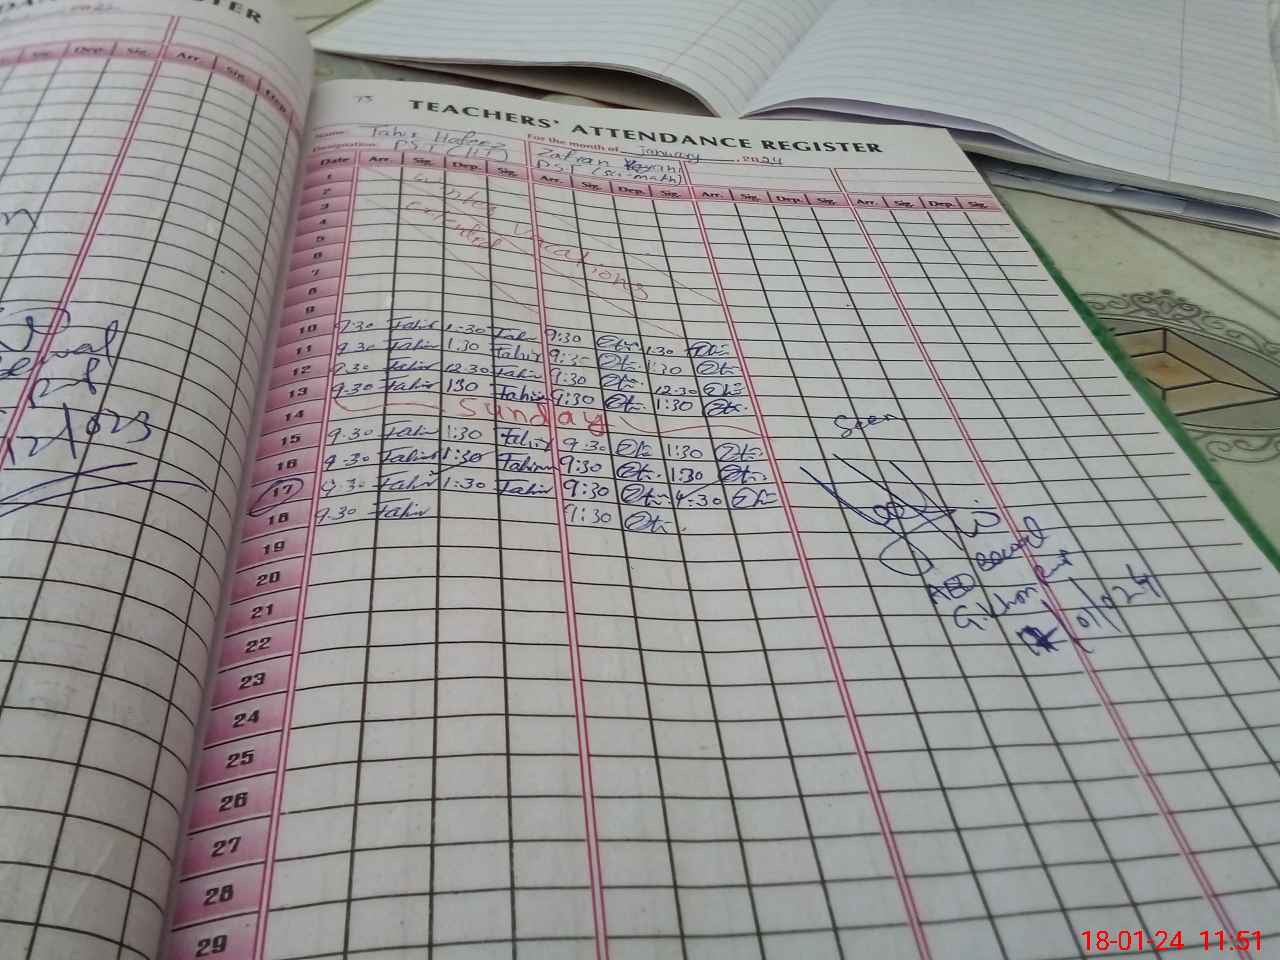 TER
Sig. Dep. Sig. Arr. Sig. Dep.
12/023
TEACHERS' ATTENDANCE REGISTER
Name: Tahir Hafeez For the month of January, 2024
Designation: PST Zafran
PST (Sci-math)
Date Arr. Sig. Dep. Sig. Arr. Sig. Dep. Sig. Arr. Sig. Dep. Sig. Arr. Sig. Dep. Sig.
1
2 Winter Vacations
3 extended
4
5
6
7
8
9
10 9:30 Tahir 1:30 Tahir 9:30 1:30
11 9:30 Tahir 1:30 Tahir 9:30 1:30
12 9:30 Tahir 12:30 Tahir 9:30 12:30
13 9:30 Tahir 1:30 Tahir 9:30 1:30
14 Sunday
15 9:30 Tahir 1:30 Tahir 9:30 1:30
16 9:30 Tahir 1:30 Tahir 9:30 1:30
17 9:30 Tahir 1:30 Tahir 9:30 1:30
18 9:30 Tahir 9:30
19
20
21
22
23
24
25
26
27
28
29
Seen
G.Khan
01/024
18-01-24 11:51